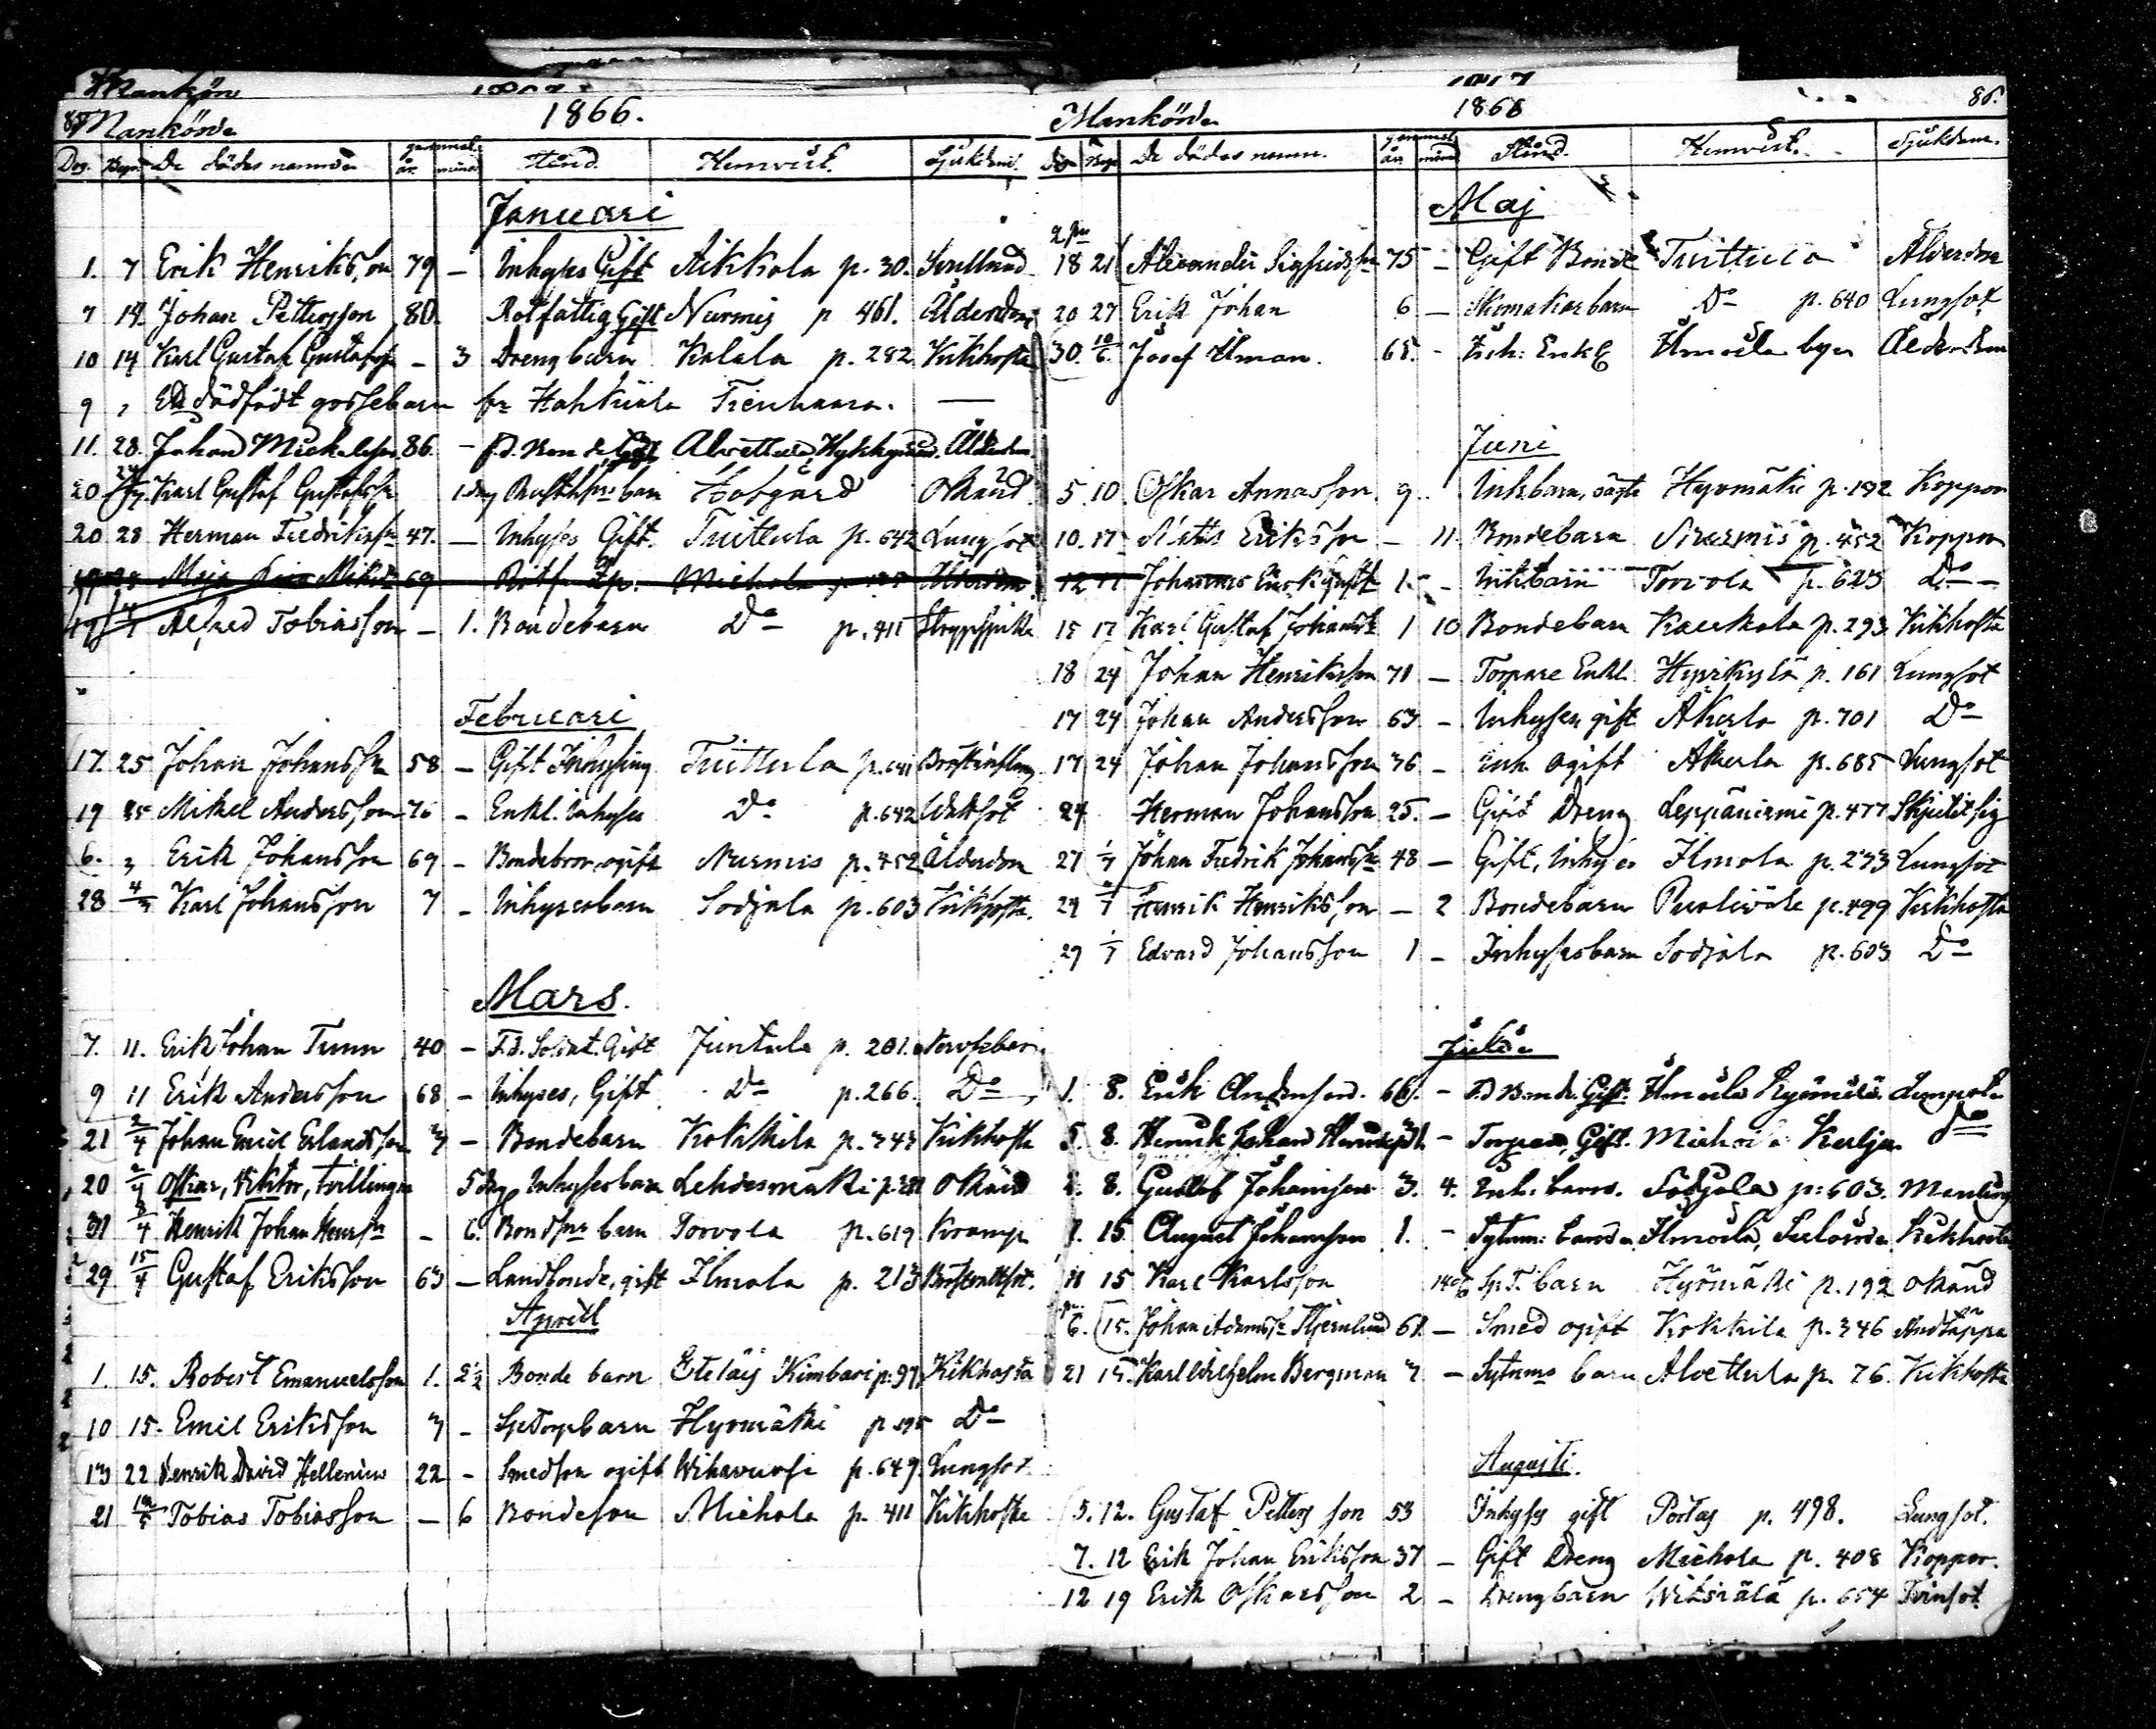 Mankön
85 Mankönde 1866.
Dog. Begr. De dödes namn år gammal månad Stånd. Hemvist. Sjukdom.
Januari
1. 7 Erik Henriksson 79 — Inhyses Gift Aikkola p. 30.
7 14. Johan Pettersson 80. Rotfattig Gift Nurmis p 461. Ålderdom
10 14 Karl Gustaf Gustafss. — 3 Drengbarn Kalala p. 282 Kikhosta
9 " Ett dödfödt gossebarn fr Hahkiala Tienhaara. —
11. 28. Johan Michelsson 86. — f.d. Bonde Gift Alvettula, Ålderdom.
20 Karl Gustaf Gustafsson 1 dag barn Okänd
20 28 Herman Fredriksson 47. — Inhyses Gift. Tuittula p. 642 Lungsot
19 28 Maja Mikel 69 Rotf. Michola Ålderdom
19 Alfred Tobiasson — 1. Bondebarn Do p. 411 Strypsjuka
Februari
17. 25 Johan Johansson 58 — Gift Tuittula p. 641
19 25 Mikel Andersson 76 — Enkl. Inhyses Do p. 642 Wattsot
6. " Erik Johansson 69 — Bondebror ogift Nurmis p. 452 Ålderdom
28 4/3 Karl Johansson 7 — Inhysesbarn Sodjala p. 603 Kikhosta.
Mars.
7. 11. Erik Johan Tunn 40 — F.d. Soldat. Gift Juntula p. 201. Nervfeber
9 11 Erik Andersson 68 — Inhyses, Gift Do p. 266. Do
21 2/4 Johan Emil Erlandsson 3 — Bondebarn Kokkila p. 343 Kikhosta
20 2/4 Oskar, Viktor, tvillingar 5 dag Inhysesbarn Lehdesmäki Okänd
31 8/4 Henrik Johan Henrss. — 6. barn Torvola p. 619 Kramp
29 15/4 Gustaf Eriksson 63 — Landbonde, gift Ilmola p. 213 Bröstvattsot.
Aprill
1. 15. Robert Emanuelsson 1. 2½ Bonde barn Eteläis Kimbari p. 97 Kikhosta
10 15. Emil Eriksson 3 — Torpbarn Hyömäki p 195 Do
13 22 Henrik David Hellenius 22 — Smedson ogift Wihavuosi p. 649. Lungsot
21 Tobias Tobiasson — 6 Bondeson Michola p. 411 Kikhosta
Mankönde 1866 86.
Dog Begr De dödes namn. år gammal månad Stånd. Hemvist. Sjukdom.
Maj
18 21 Alexander Sigfridsson 75 — Gift Bonde Tuittula Ålderdom
20 27 Erik Johan 6 — Skomakarbarn Do p. 640 Lungsot
30. 10/6. Josef Ilman. 68. — Inh: Enkl Ilmoila by Ålderdom
Juni
5 10 Oskar Annasson 9. Inhbarn, oägta Hyömäki p. 192 Koppor
10. 17 Matts Eriksson — 11. Bondebarn Nurmis p. 452 Koppor
12 17 Johannes Gust 1 — Inhbarn Torvola p. 623 Do
15 17 Karl Gustaf Johanss. 1 10 Bondebarn Kaukola p. 293 Kikhosta
18 24 Johan Henriksson 71 — Torpare Enkl. p. 161 Lungsot
17 24 Johan Andersson 63 — Inhyses, gift Äkerla p. 701 Do
17 24 Johan Johansson 36 — Inh ogift Äkerla p. 685 Lungsot
24 Herman Johansson 25. — Gift Dreng Leppäniemi p. 477 Skjutit sig
27 1/7 Johan Fredrik Johansson 48 — Gift, Inhyses Ilmola p. 233 Lungsot
29 Henrik Henriksson — 2 Bondebarn p. 499 Kikhosta
29 1/7 Edvard Johansson 1 — Inhysesbarn Sodjala p. 603 Do
Juli
1. 8. Erik Andersson. 66. — F.d. Bonde. Gift. Ilmoila Lungsot
5. 8. Henrik Johan — Torpare, Gift. Michoila Do
8. Gustaf Johansson 3. 4. Inh: barn. Sodjala p: 603.
15 August Johansson 1. — barn Ilmoila, Kikhosta
11 15 Karl Karlsson barn Hyömäki p. 192 Okänd
6. 15. Johan Adamss. Stjernlund 61. — Smed ogift Kokkila p. 346 Andtäppa
21 Karl Wilhelm Bergman 3 — barn Alvettula p. 76. Kikhosta
Augusti.
5. 12. Gustaf Pettersson 53 Inhyses gift Portas p. 498. Lungsot.
7. 12 Erik Johan Eriksson 37 — Gift Dreng Michola p. 408 Koppor.
12 19 Erik Oskarsson 2 — Drengbarn Witsiälä p. 654 Tvinsot